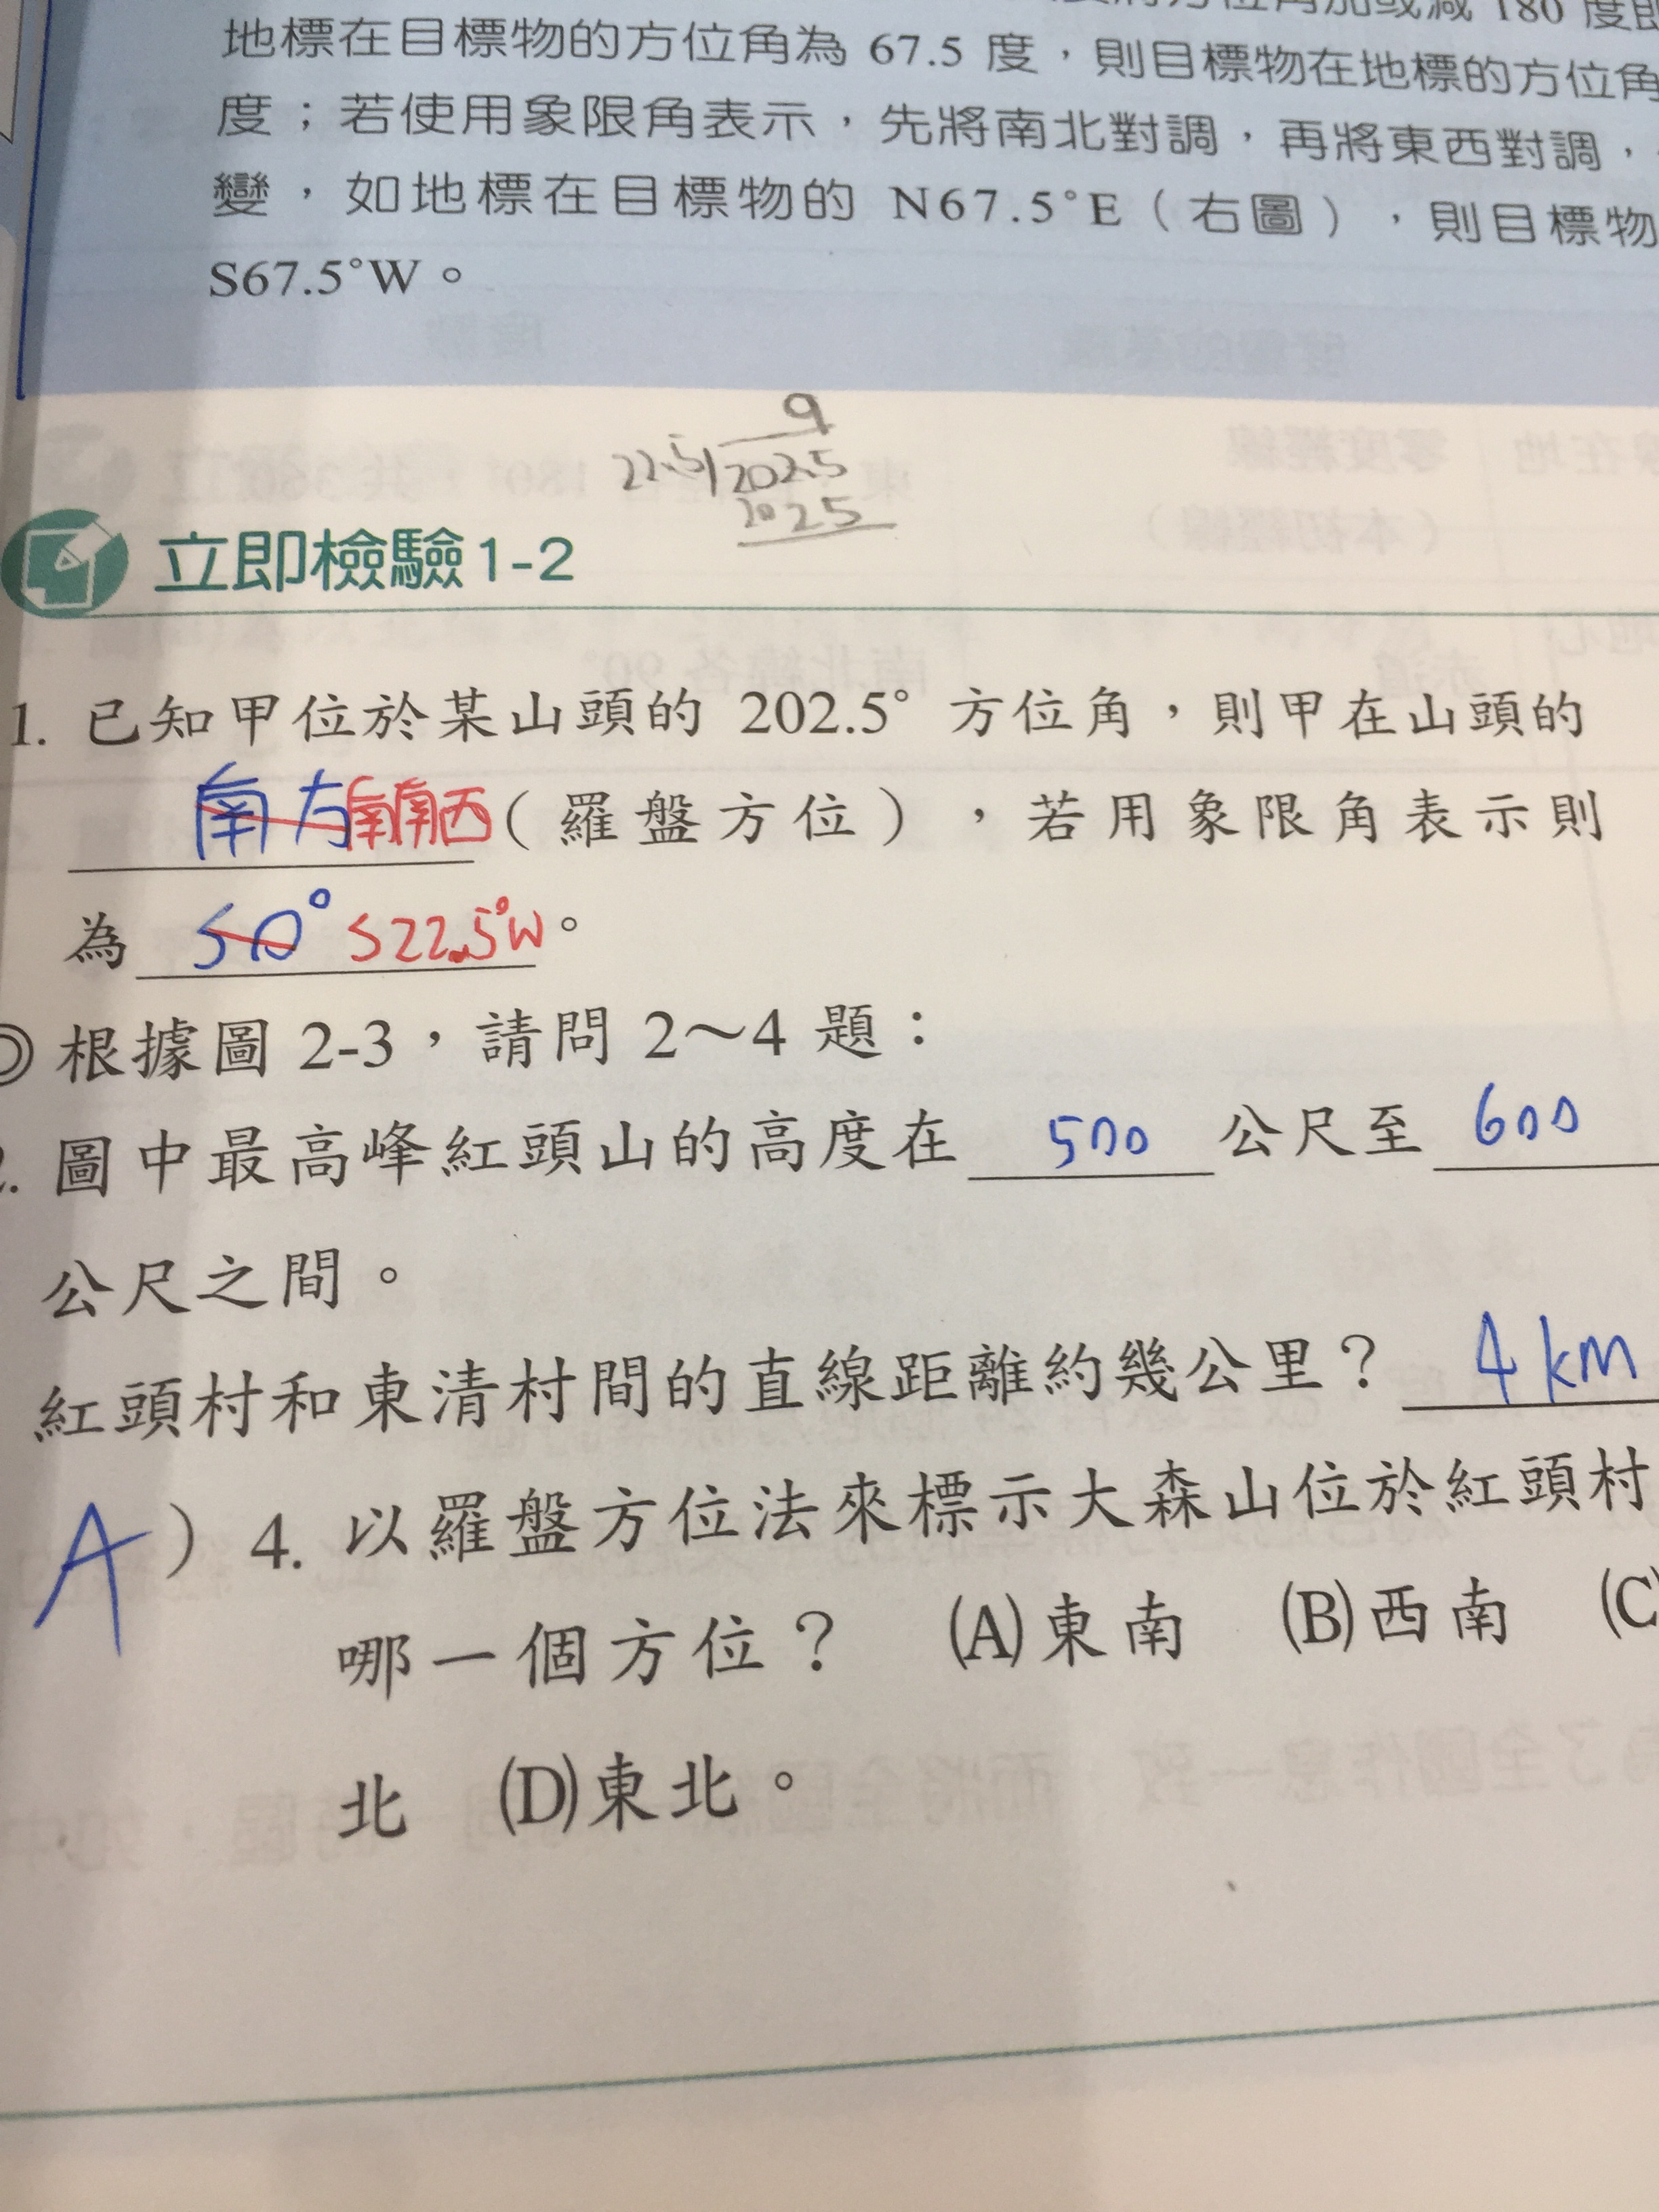 180 度
地標在目標物的方位角為 67.5 度，則目標物在地標的方位角
度；若使用象限角表示，先將南北對調，再將東西對調，
變，如地標在目標物的 N67.5°E（右圖），則目標物
S67.5°W。
9
22.5 202.5
2025
立即檢驗1-2
1. 已知甲位於某山頭的 202.5° 方位角，則甲在山頭的
南方南南西（羅盤方位），若用象限角表示則
為 S0° S22.5°W。
◎根據圖 2-3，請問 2～4 題：
. 圖中最高峰紅頭山的高度在 500 公尺至 600
公尺之間。
紅頭村和東清村間的直線距離約幾公里？ 4 km
A ）4. 以羅盤方位法來標示大森山位於紅頭村
哪一個方位？ (A)東南 (B)西南 (C)
北 (D)東北。